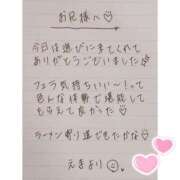 お兄様へ♡
今日は遊びに来てくれて
ありがとうございました
フェラ気持ちいい〜!って
色んな体勢で堪能して
もらえて良かった♡
ラーメン寄り道でもたかな♡
えまより☺